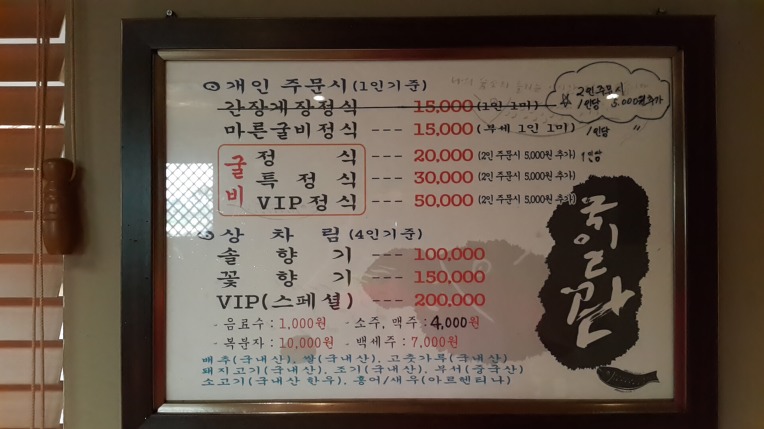 ⊙개인 주문시(1인기준)
간장게장정식 15,000(1인 1미)
2인주문시
1인당 5.000원추가
마른굴비정식 --- 15,000(부세 1인 1미) 1인당 "
굴비
정식 --- 20,000(2인 주문시 5,000원 추가) 1인당
특정식 --- 30,000(2인 주문시 5,000원 추가)
VIP정식 --- 50,000(2인 주문시 5,000원 추가)
⊙상차림(4인기준)
솔향기 --- 100,000
꽃향기 --- 150,000
VIP(스페셜) --- 200,000
- 음료수 : 1,000원 - 소주, 맥주 : 4,000원
- 복분자 : 10,000원 - 백세주 : 7,000원
배추(국내산), 쌀(국내산), 고춧가루(국내산)
돼지고기(국내산), 조기(국내산), 부서(중국산)
소고기(국내산 한우), 홍어/새우(아르헨티나)
국일관